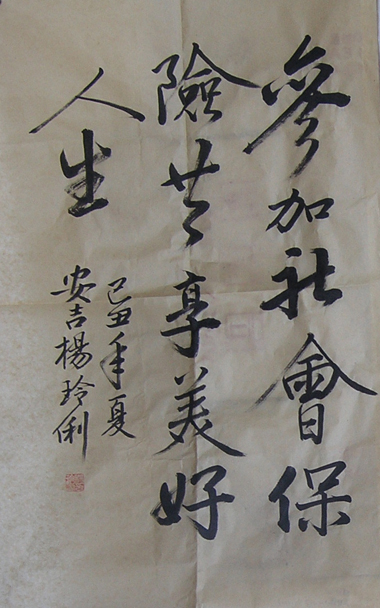 參加社會保
險共享美好
人生
己丑年夏
安吉楊玲俐